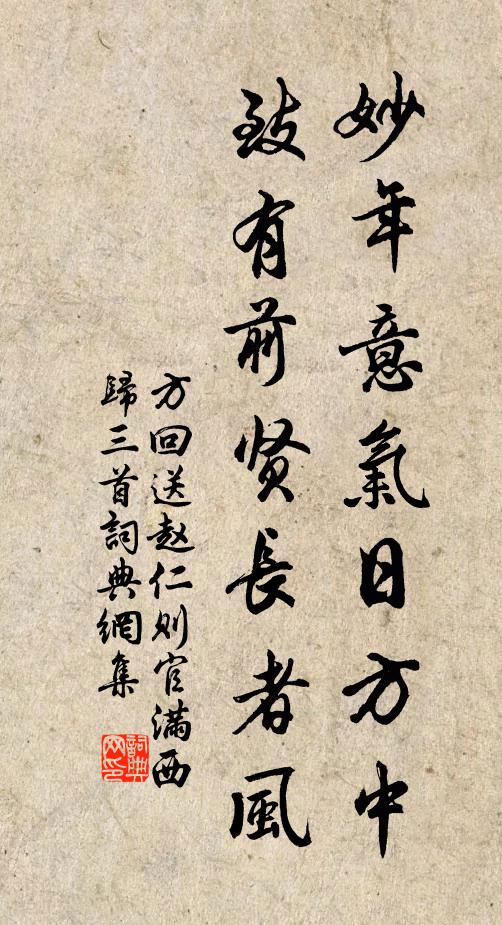 妙年意氣日方中
致有前贤長者風
方回送赵仁则官满西
歸三首詞典網集
詞典
网印